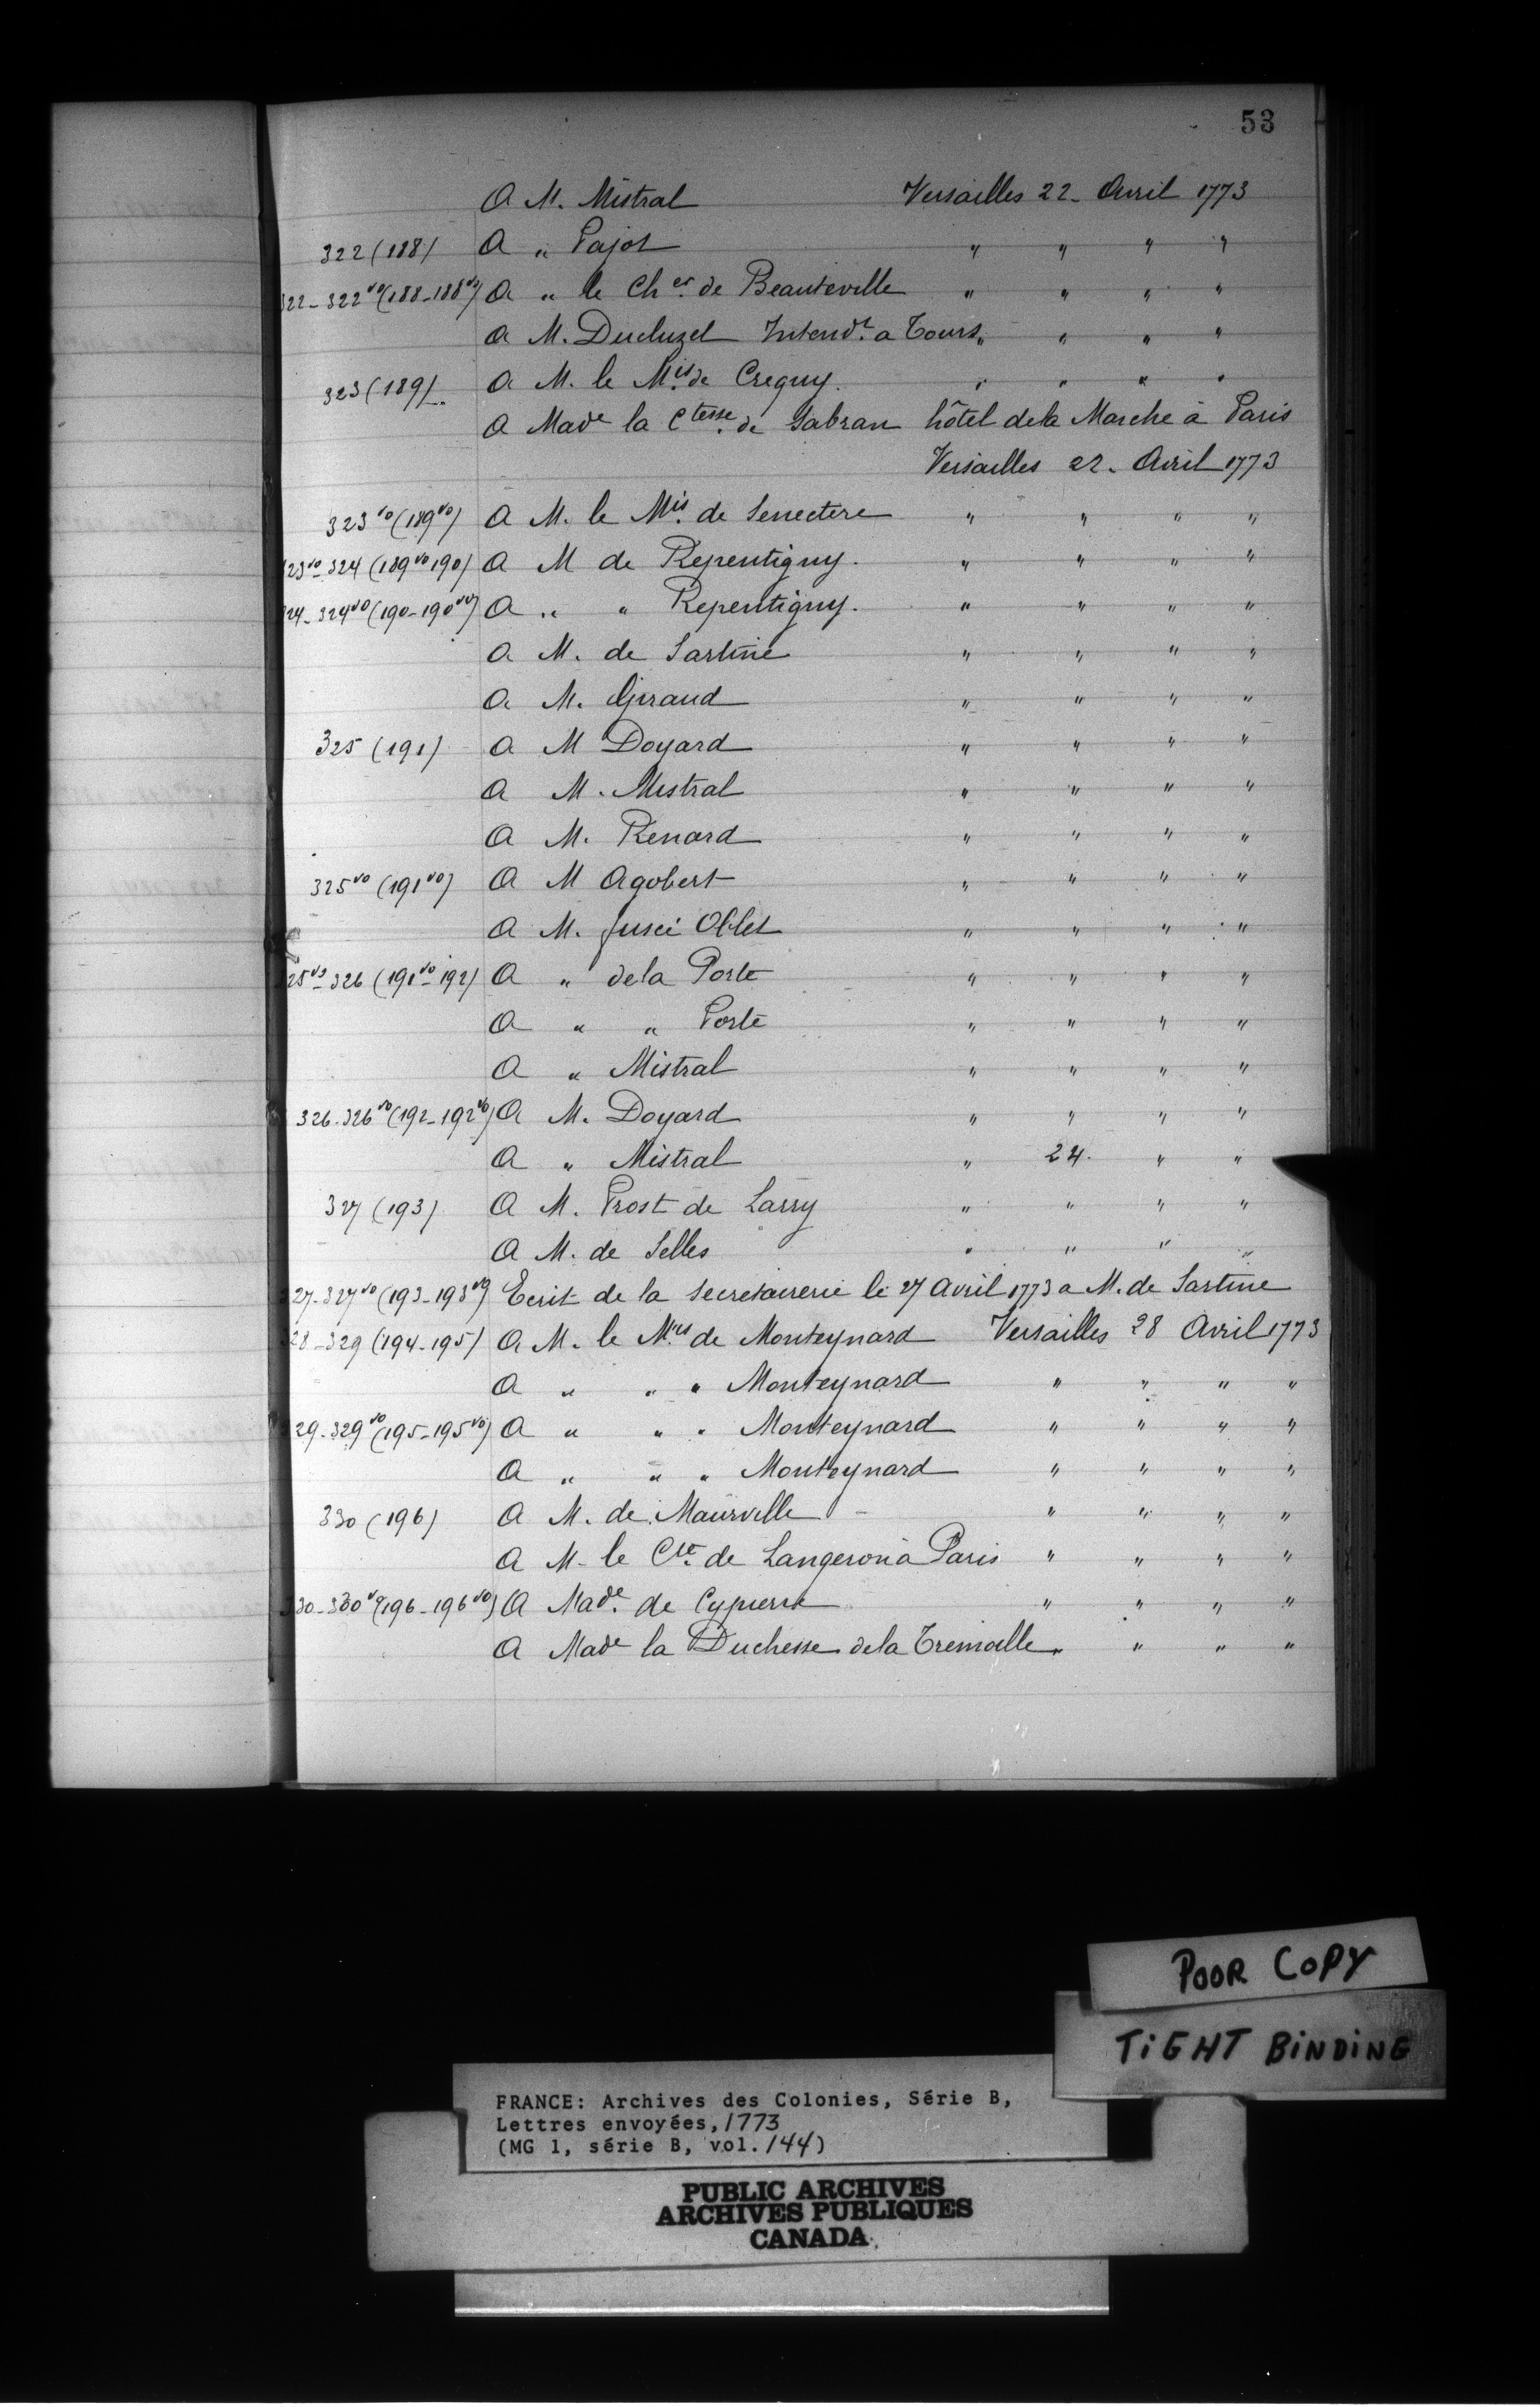 53
A M. Mistral Versailles 22. Avril 1773
322 (188) A " Pajot " " " "
322-322vo (188-188vo) A " le Cher. de Beauteville " " " "
A M. Ducluzel Intendt. a Tours " " " "
323 (189). A M. le Mis. de Creguy. " " " "
A Made la Ctesse. de Sabran hôtel de la Marche à Paris
Versailles 22. Avril 1773
323vo (189vo) A M. le Mis. de Senectere " " " "
23vo-324 (189vo190) A M de Repentigny. " " " "
24-324vo (190-190vo) A " " Repentigny. " " " "
A M. de Sartine " " " "
A M. Giraud " " " "
325 (191) A M Doyard " " " "
A M. Mistral " " " "
A M. Renard " " " "
325vo (191vo) A M Agobert " " " "
A M. Oblet " " " "
25vo-326 (191vo-192) A " dela Porte " " " "
A " " Porte " " " "
A " Mistral " " " "
326-326vo (192-192vo) A M. Doyard " " " "
A " Mistral " 24. " "
327 (193) A M. Prost de Larry " " " "
A M. de Selles " " " "
27-327vo (193-193vo) Ecrit de la secretairerie le 27 Avril 1773 a M. de Sartine
28-329 (194-195) A M. le Mis de Monteynard Versailles 28 Avril 1773
A " " " Monteynard " " " "
29-329vo (195-195vo) A " " " Monteynard " " " "
A " " " Monteynard " " " "
330 (196) A M. de Maurville " " " "
A M. le Cte. de Langeron à Paris " " " "
30-330vo (196-196vo) A Made. de Cypierre " " " "
A Made la Duchesse dela Tremoille " " " "
POOR COPY
TIGHT BINDING
FRANCE: Archives des Colonies, Série B,
Lettres envoyées, 1773
(MG 1, série B, vol. 144)
PUBLIC ARCHIVES
ARCHIVES PUBLIQUES
CANADA